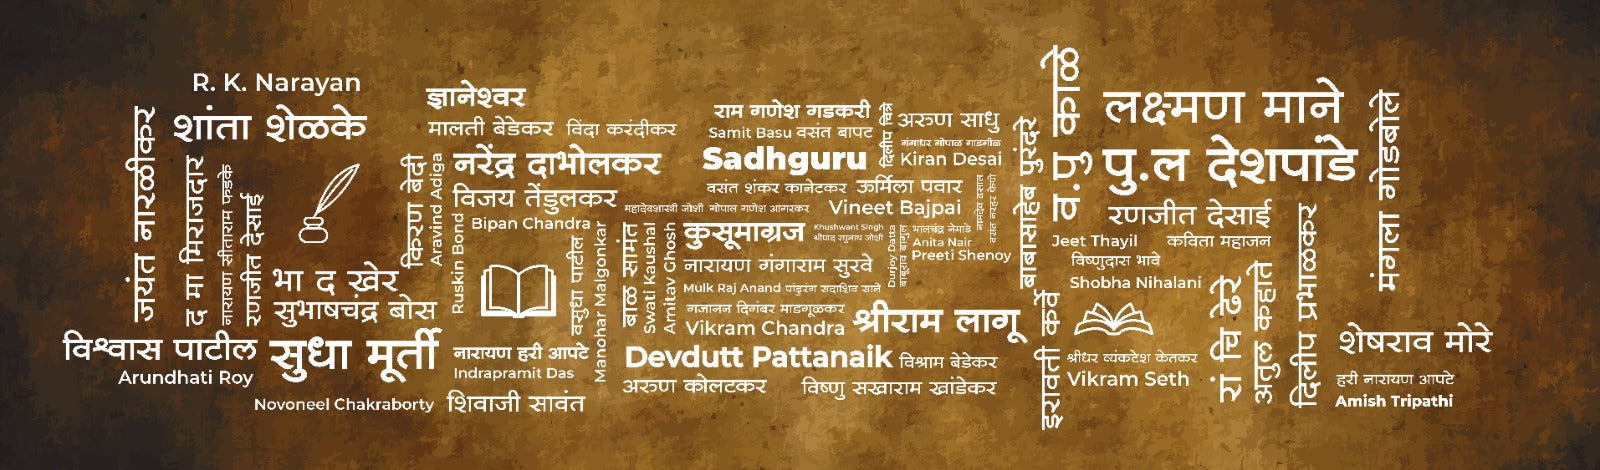 R. K. Narayan
शांता शेळके
जयंत नारळीकर
द मा मिराजदार
नारायण सीताराम फडके
रणजीत देसाई
भा द खेर
सुभाषचंद्र बोस
विश्वास पाटील
Arundhati Roy
सुधा मूर्ती
Novoneel Chakraborty
ज्ञानेश्वर
मालती बेडेकर
विंदा करंदीकर
किरण बेदी
Aravind Adiga
नरेंद्र दाभोलकर
विजय तेंडुलकर
Bipan Chandra
Ruskin Bond
वसुधा पाटील
Manohar Malgonkar
नारायण हरी आपटे
Indrapramit Das
शिवाजी सावंत
राम गणेश गडकरी
Samit Basu
वसंत बापट
दिलीप चित्रे
Sadhguru
वसंत शंकर कानेटकर
ऊर्मिला पवार
महादेवशास्त्री जोशी
गोपाल गणेश आगरकर
Vineet Bajpai
बाळ सामंत
Swati Kaushal
Amitav Ghosh
कुसूमाग्रज
Khushwant Singh
श्रीपाद रघुनाथ जोशी
नारायण गंगाराम सुरवे
Mulk Raj Anand
पांडुरंग सदाशिव साने
गजानन दिगंबर माडगूळकर
Vikram Chandra
श्रीराम लागू
Devdutt Pattanaik
विश्राम बेडेकर
अरुण कोलटकर
विष्णु सखाराम खांडेकर
अरुण साधु
गंगाधर गोपाळ गाडगीळ
Kiran Desai
नामदेव ढसाल
Durjoy Datta
बाबूराव बागुल
भालचंद्र नेमाडे
Anita Nair
Preeti Shenoy
बाबासाहेब पुरंदरे
व.पु काळे
लक्ष्मण माने
पु.ल देशपांडे
मंगला गोडबोले
रणजीत देसाई
Jeet Thayil
कविता महाजन
विष्णुदास भावे
Shobha Nihalani
इरावती कर्वे
श्रीधर व्यंकटेश केतकर
Vikram Seth
रां चि ढेरे
अतुल कहाते
दिलीप प्रभाळकर
शेषराव मोरे
हरी नारायण आपटे
Amish Tripathi